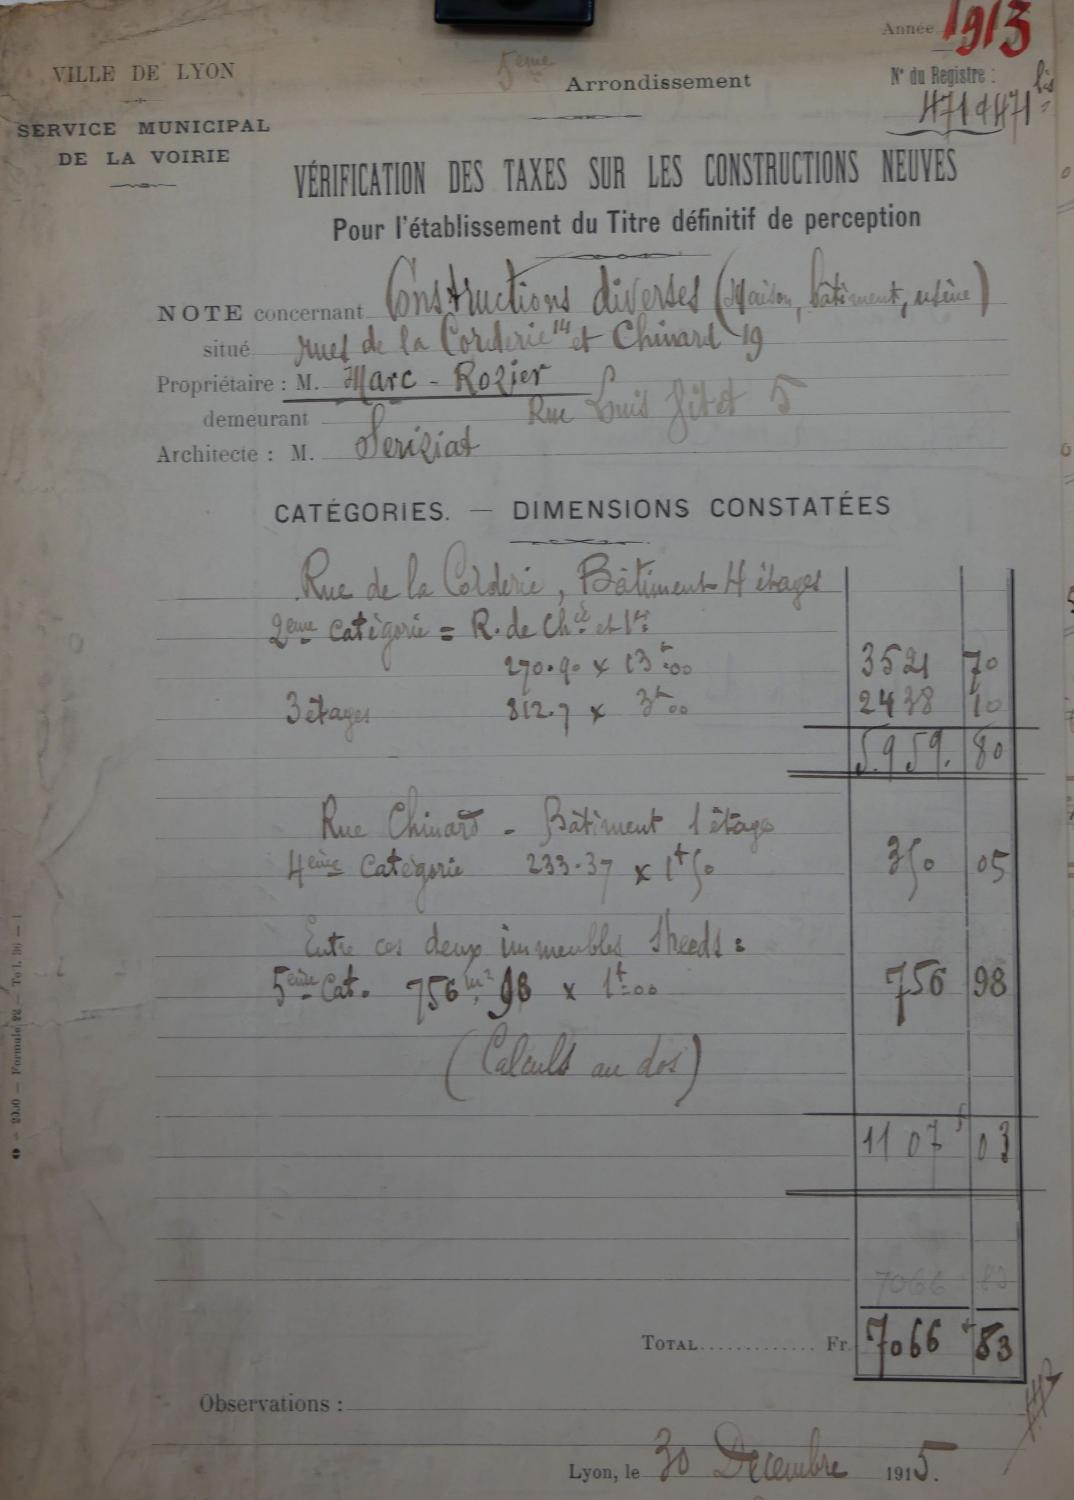 Année 1913
VILLE DE LYON
5ème Arrondissement
N° du Registre :
471 d 471 bis
SERVICE MUNICIPAL
DE LA VOIRIE
VÉRIFICATION DES TAXES SUR LES CONSTRUCTIONS NEUVES
Pour l'établissement du Titre définitif de perception
NOTE concernant Constructions diverses (Maison, bâtiment, usine)
situé rues de la Corderie 14 et Chinard 19
Propriétaire : M. Marc - Rozier
demeurant Rue Louis 5
Architecte : M. Seriziat
CATÉGORIES. — DIMENSIONS CONSTATÉES
Rue de la Corderie, Bâtiment 4 étages
2ème catégorie = R. de Chée et 1er
270.90 x 13f00 3521 70
3 étages 812.7 x 3f00 2438 10
5.959. 80
Rue Chinard - Bâtiment 1 étage
4ème Catégorie 233.37 x 1f50 350 05
Entre ces deux immeubles Sheeds :
5ème Cat. 756m²,98 x 1f00 756 98
(Calculs au dos)
1107f 03
7066 83
TOTAL............. Fr. 7066f 83
Observations :
Lyon, le 30 Décembre 1915.
— Formule 22 —